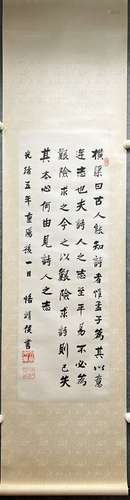 橫渠曰古人能知詩者惟孟子為其以意
逆志也夫詩人之志至平易不必為
艱險求之今以艱險求詩則已失
其本心何由見詩人之志
光緒五年重陽後一日
書